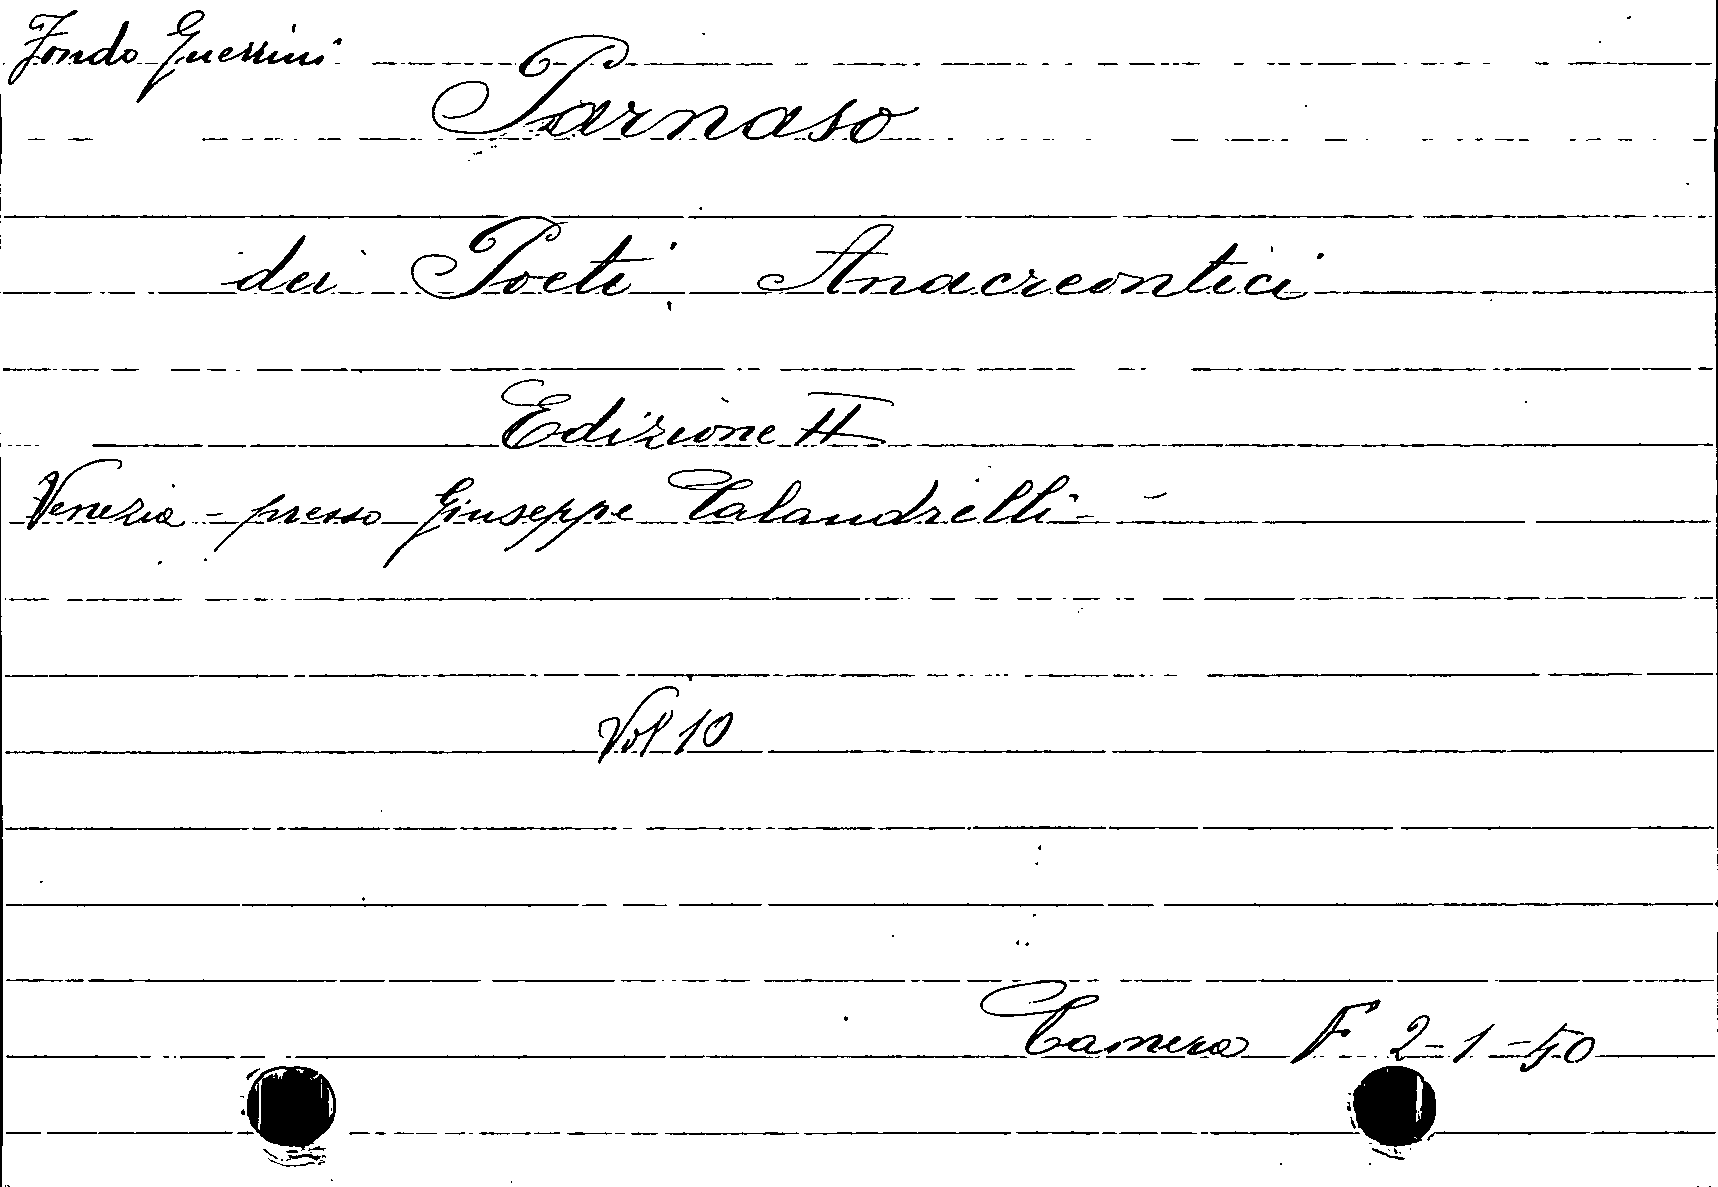 Fondo Guerrini
Parnaso
dei Poeti Anacreontici
Edizione II
Venezia - presso Giuseppe Calandrelli -
Vol 10
Camera F 2-1-50